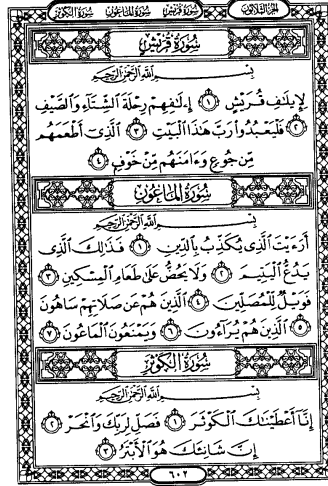 الجزء الثلاثون سورة قريش سورة الماعون سورة الكوثر
سورة قريش
بِسْمِ اللَّهِ الرَّحْمَٰنِ الرَّحِيمِ
لِإِيلَٰفِ قُرَيْشٍ ١ إِۦلَٰفِهِمْ رِحْلَةَ ٱلشِّتَآءِ وَٱلصَّيْفِ
٢ فَلْيَعْبُدُوا۟ رَبَّ هَٰذَا ٱلْبَيْتِ ٣ ٱلَّذِىٓ أَطْعَمَهُم
مِّن جُوعٍ وَءَامَنَهُم مِّنْ خَوْفٍۭ ٤
سورة الماعون
بِسْمِ اللَّهِ الرَّحْمَٰنِ الرَّحِيمِ
أَرَءَيْتَ ٱلَّذِى يُكَذِّبُ بِٱلدِّينِ ١ فَذَٰلِكَ ٱلَّذِى
يَدُعُّ ٱلْيَتِيمَ ٢ وَلَا يَحُضُّ عَلَىٰ طَعَامِ ٱلْمِسْكِينِ ٣
فَوَيْلٌ لِّلْمُصَلِّينَ ٤ ٱلَّذِينَ هُمْ عَن صَلَاتِهِمْ سَاهُونَ
٥ ٱلَّذِينَ هُمْ يُرَآءُونَ ٦ وَيَمْنَعُونَ ٱلْمَاعُونَ ٧
سورة الكوثر
بِسْمِ اللَّهِ الرَّحْمَٰنِ الرَّحِيمِ
إِنَّآ أَعْطَيْنَٰكَ ٱلْكَوْثَرَ ١ فَصَلِّ لِرَبِّكَ وَٱنْحَرْ ٢
إِنَّ شَانِئَكَ هُوَ ٱلْأَبْتَرُ ٣
٦٠٢